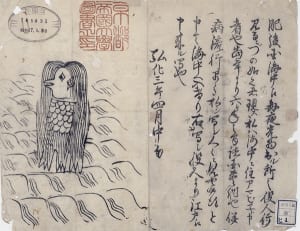 肥後国海中え毎夜光物出ル所之役人行
見るニづの如く者現ス私ハ海中ニ住アマビヱト申
者也當年より六ヶ年之間諸国豊作也併
病流行早々私シ写シ人々ニ見セ候得と
申て海中へ入けり右ハ写シ役人より江戸え
申来ル写也
弘化三年四月中旬